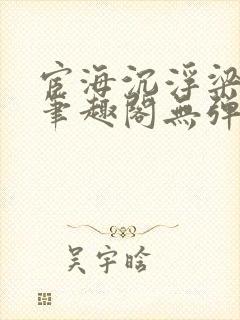 宦海沉浮梁
笔趣阁無弹
吴宇晗